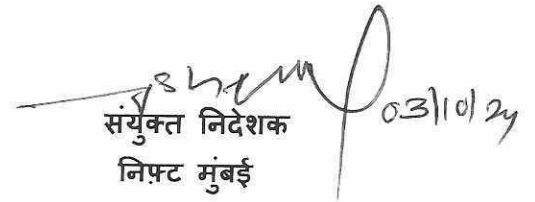 03/10/24
संयुक्त निदेशक
निफ़्ट मुंबई